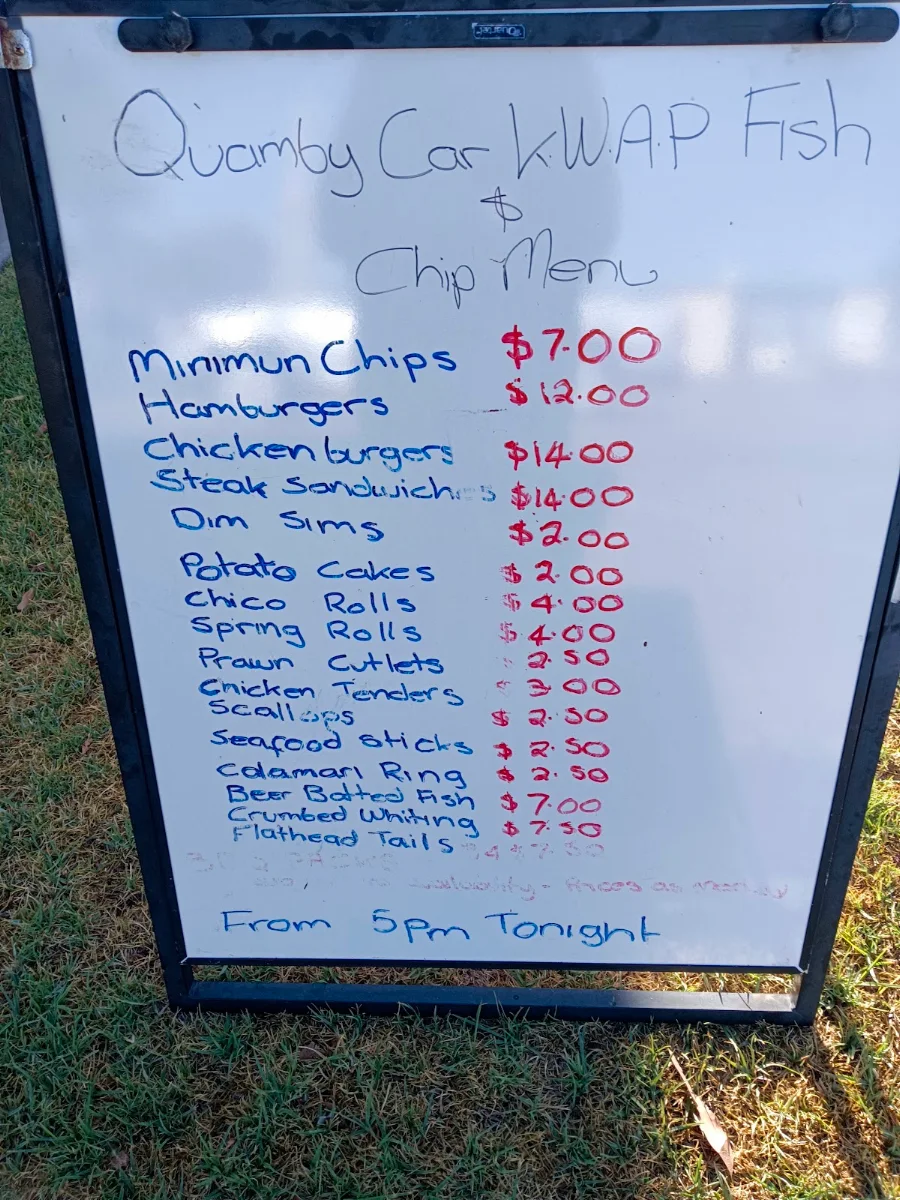 Quartet
Quamby Car K.W.A.P Fish
&
Chip Menu
Minimun Chips $7.00
Hamburgers $12.00
Chicken burgers $14.00
Steak Sandwiches $14.00
Dim Sims $2.00
Potato Cakes $2.00
Chico Rolls $4.00
Spring Rolls $4.00
Prawn Cutlets 2.50
Chicken Tenders $3.00
Scallops $2.50
Seafood Sticks $2.50
Calamari Ring $2.50
Beer Batted Fish $7.00
Crumbed Whiting $7.50
Flathead Tails
availability - Prices as
From 5pm Tonight